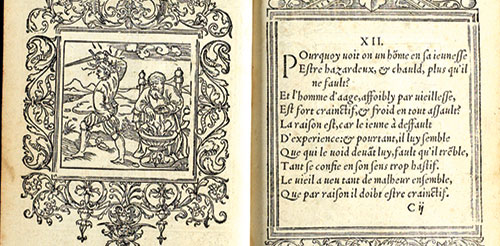 XII.
POurquoy voit on un hõme en sa ieunesse
Estre hazardeux, & chauld, plus qu'il
ne fault?
Et l'homme d'aage, affoibly par vieillesse,
Est fort crainctif, & froid en tout assault?
La raison est, car le ieune à deffault
D'experience: & pourtant, il luy semble
Que qui le void devãt luy, fault qu'il trẽble,
Tant se confie en son sens trop hastif.
Le vieil a veu tant de malheur ensemble,
Que par raison il doibt estre crainctif.
C ij